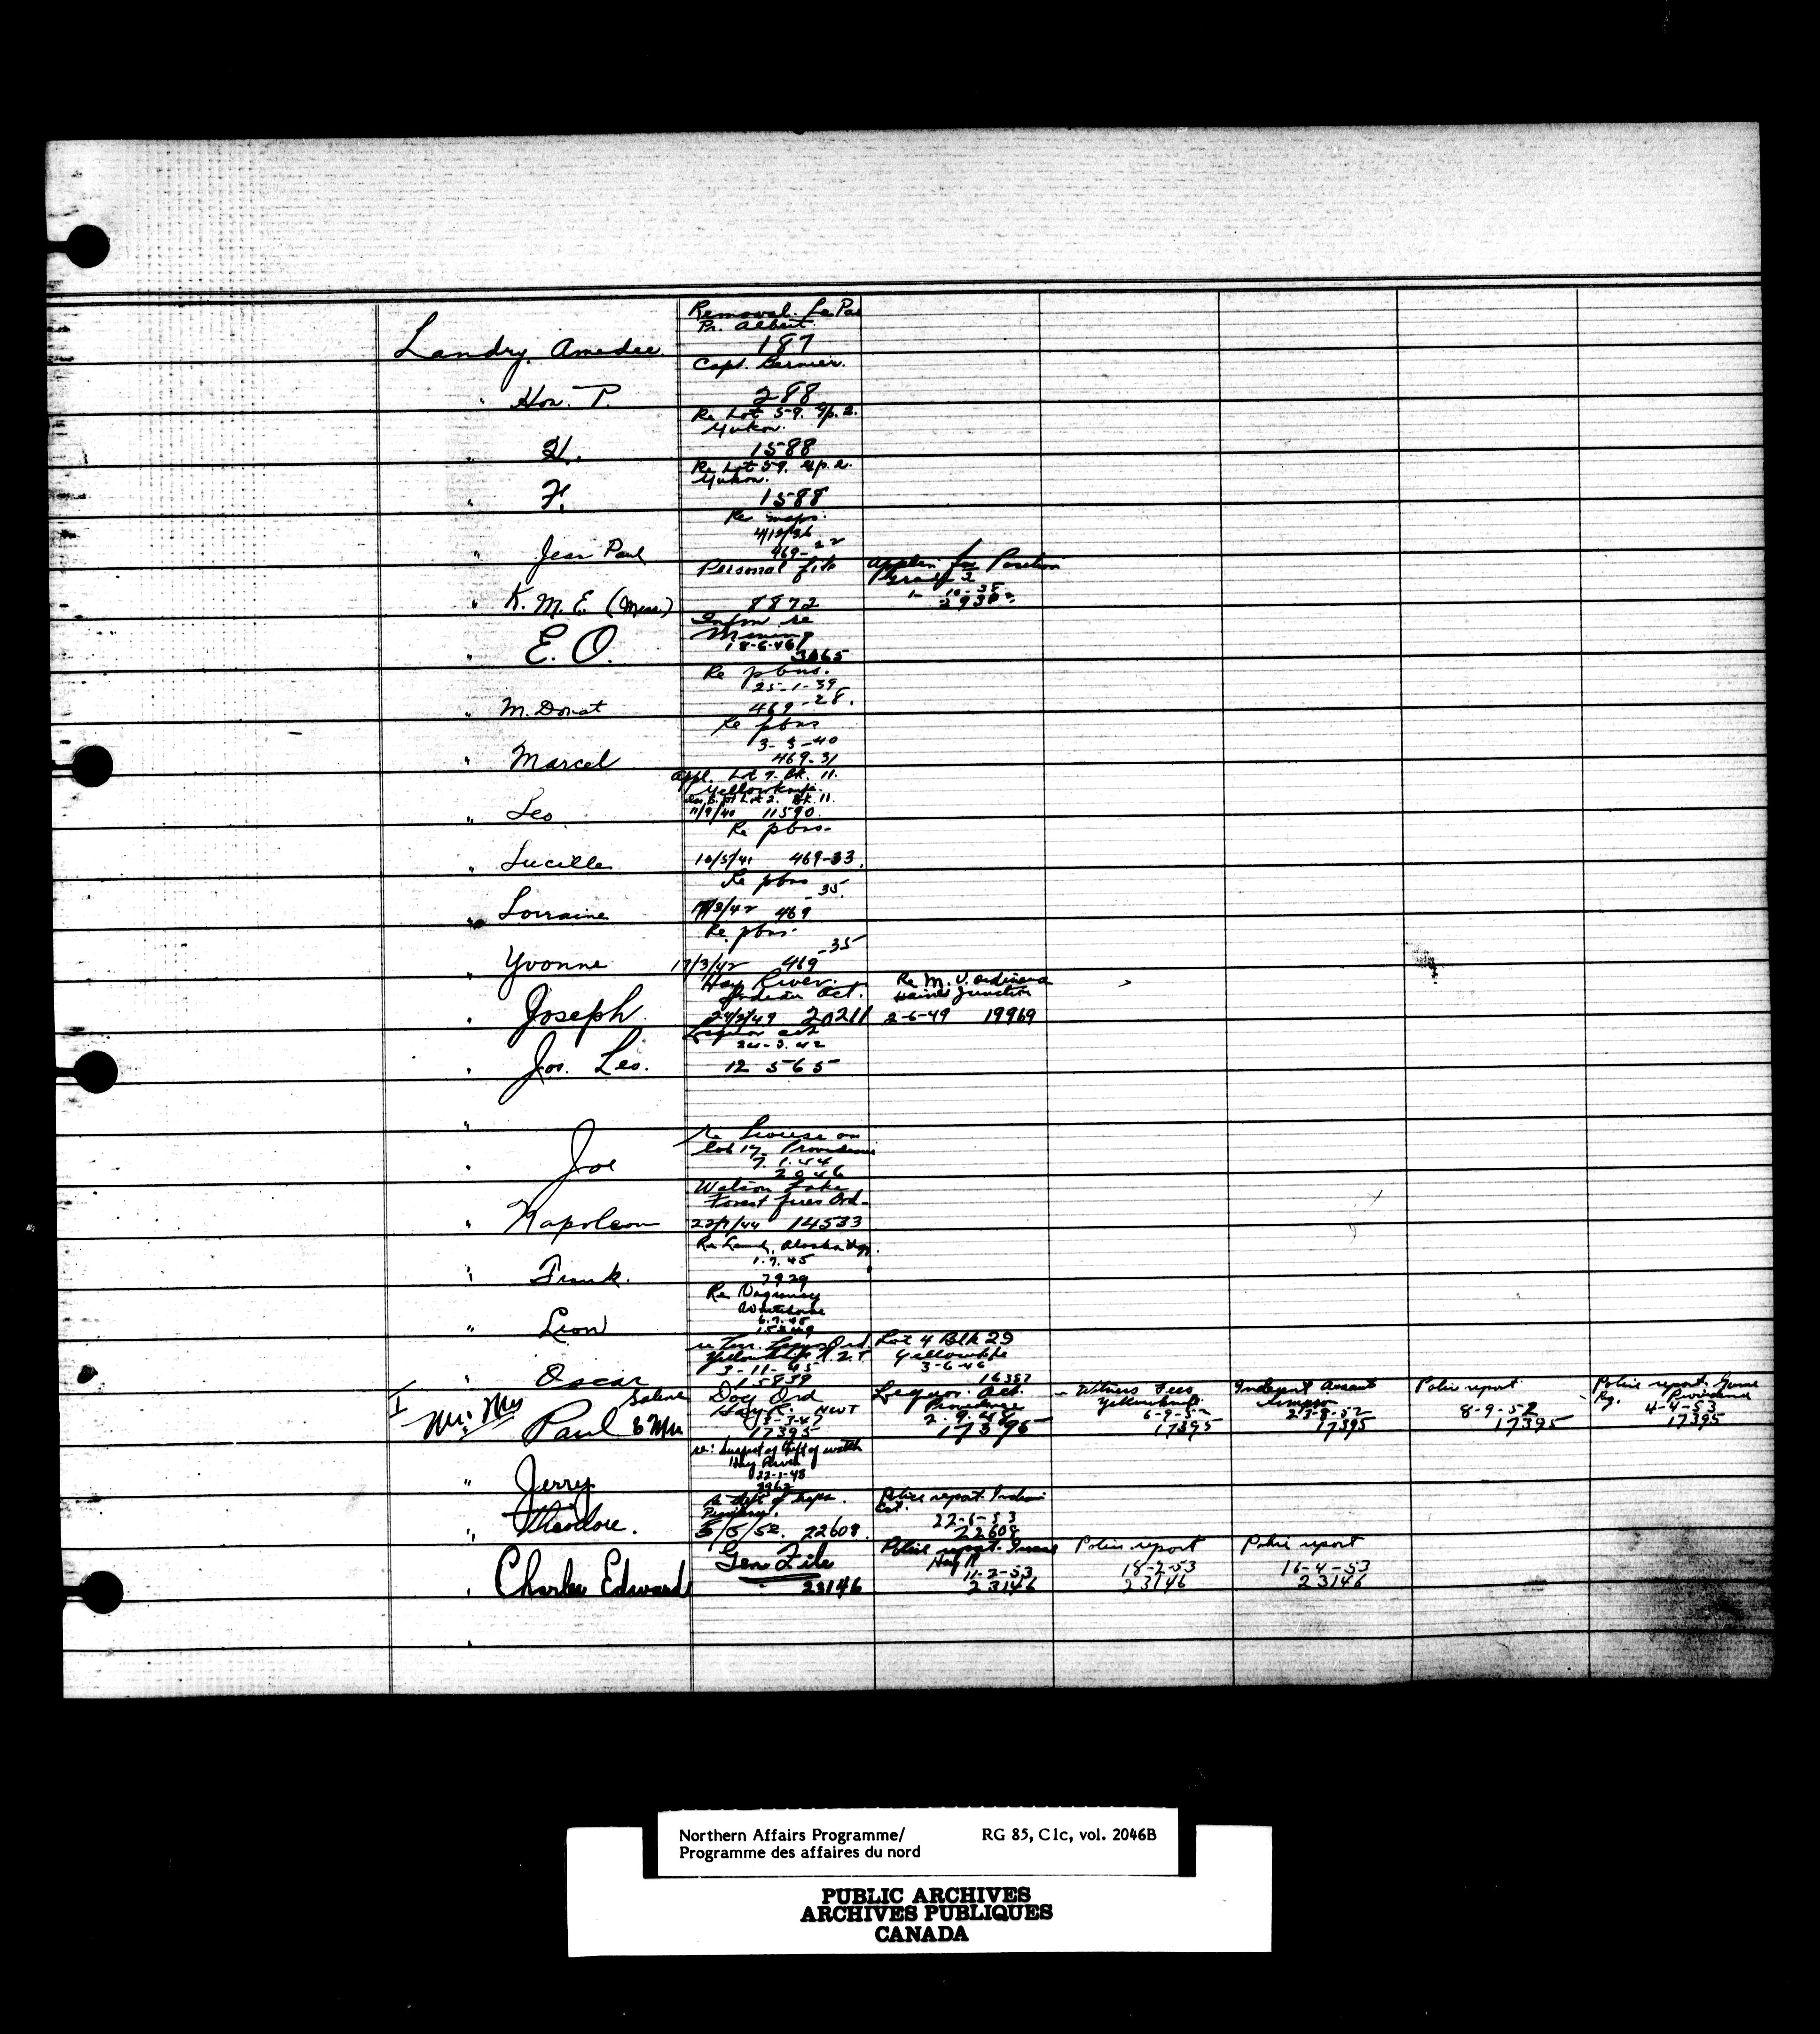 Removal. Le Pas
Pr. Albert.
Landry, Amedee 187
Capt. Bernier.
" Hon. P. 288
Re Lot 59. Gp. 2.
Yukon.
" H. 1588
Re Lot 59. Gp. 2.
Yukon.
" F. 1588
Re maps.
4/12/36
" Jean Paul 469-22
Personal file Applcn for Position
Grade 2
" K. M. E. (Miss) 8872
Infm re
Mining
18-6-46
" E. O. 3065
Re pbns.
25-1-39
" M. Donat 469-28.
Re pbns
3-5-40
" Marcel 469-31
Appl. Lot 7. Bk. 11.
Yellowknife
Lot 2. Bk. 11.
" Leo 11/9/40 11590.
Re pbns.
" Lucille 10/5/41 469-33.
Re pbns
" Lorraine 17/3/42 469-35
Re pbns.
" Yvonne 17/3/42 469-35
Hay River. Re M. V. Ordinance
Indian Act. Haines Junction
" Joseph. 24/3/49 20211 2-6-49 19969
Liquor act
24-3-42
" Jos. Leo. 12565
"
re License on
lot 17 Providence
7.1.44
" Joe 2046
Watson Lake
Forest fires Ord.
" Napoleon 22/7/44 14533
Re Land, Alaska Hgy.
1.7.45
" Frank. 7929
Re Vagrancy
Whitehorse
" Leon
Lot 4 Blk 29
Yellowknife Yellowknife
3-11-45 3-6-46
" Oscar 15839 16357
Dog Ord Liquor Act. Witness Fees Indigent Police report Police report.
Hay R. NWT Providence Yellowknife Simpson 8-9-52 Providence
15-3-47 2.9.48 6-9-52 23-8-52 4-4-53
Mr. Mrs Paul & Mrs 17395 17395 17395 17395 17395 17395
re: Suspect of theft of watch
Hay River
22-1-48
" Jerry
Police report. Indian
22-6-53
" Theodore. 5/5/52. 22608. 22608
Gen File Police report. Police report Police report
Hay R 11-2-53 18-2-53 16-4-53
" Charles Edward 23146 23146 23146 23146
"
Northern Affairs Programme/ RG 85, C1c, vol. 2046B
Programme des affaires du nord
PUBLIC ARCHIVES
ARCHIVES PUBLIQUES
CANADA